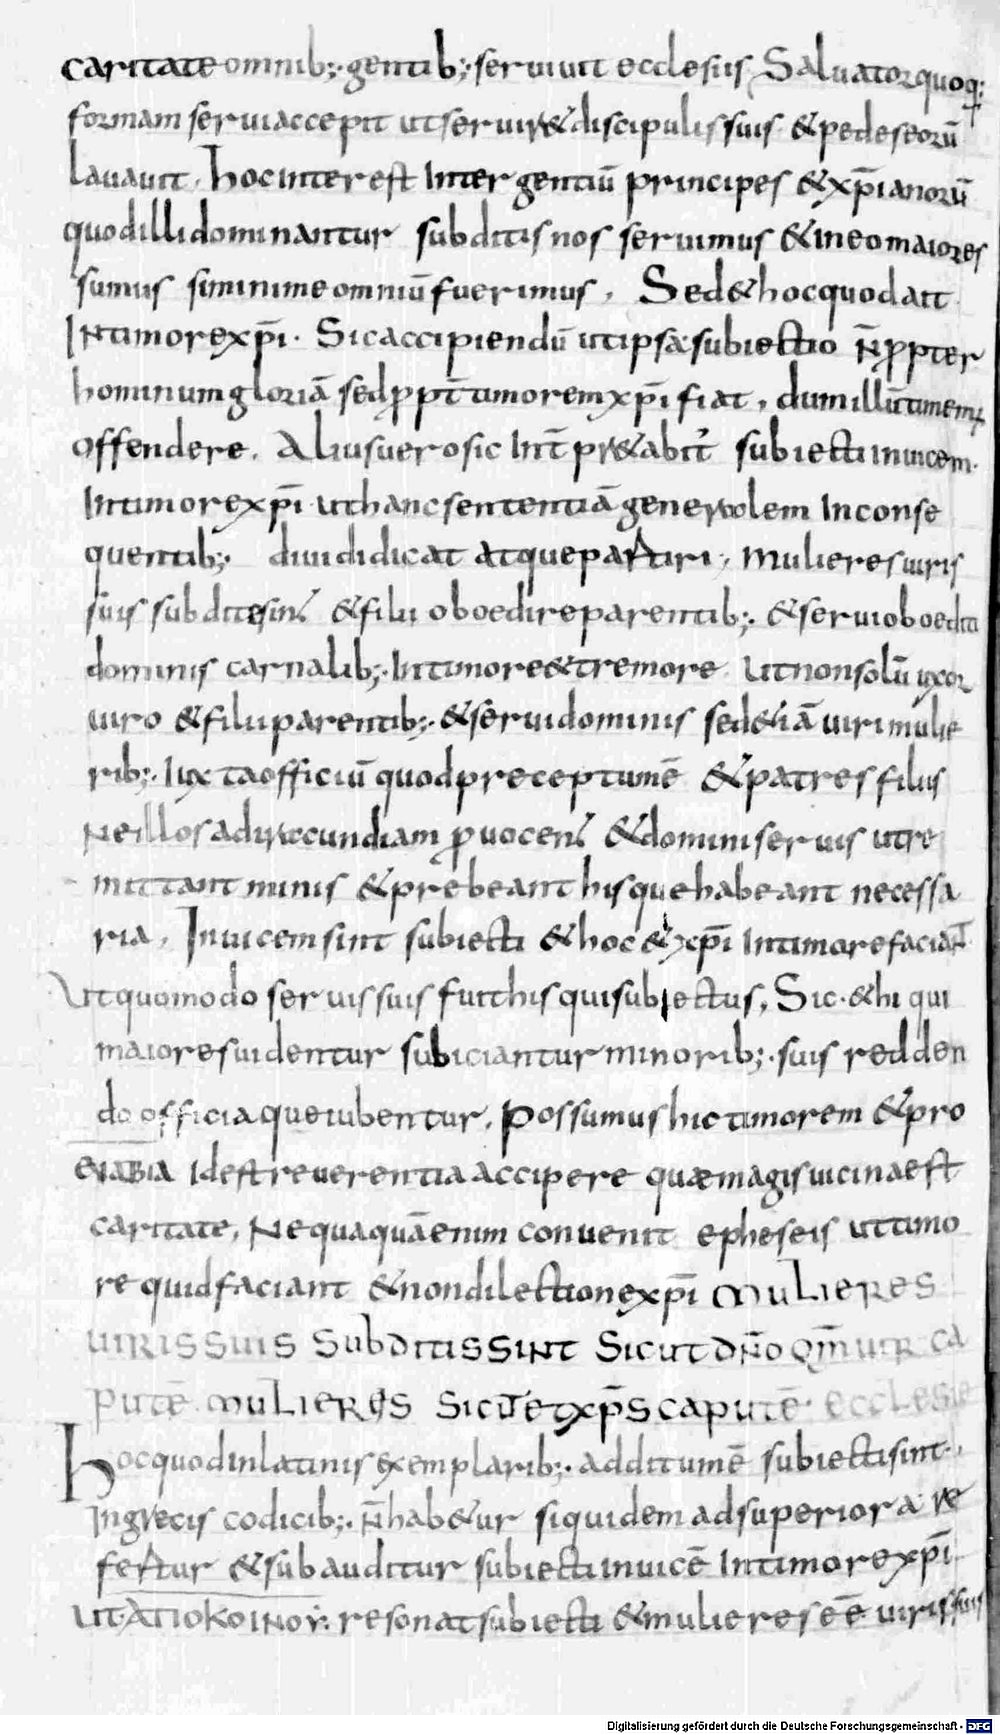 caritate omnib;· gentib;· seruiuit ecclesiis, Saluator quoq;
formam serui accepit ut seruir& discipulis suis & pedes eorū
Lauauit, hoc interest Inter gentiū principes & xp̄ianorū
quod illi dominantur subditis nos seruimus & in eo maiores
sumus si minime omniū fuerimus, Sed & hoc quod ait
IN timore xp̄i· Sic accipiendū ut ipsa subiectio n̄ ꝓpter
hominum gloriā sed ꝓpt̄ timorem xp̄i fiat, dum illū timem;
offendere, Alius uero sic Int̄pr&abit̉ subiecti inuicem·
In timore xp̄i ut hanc sententiā generalem In conse
quentib;· diuidi dicat atque partiri, mulieres uiris
suis subdite sint & filii oboedire parentib;· & serui oboedia
dominis carnalib;· In timore & tremore Ut non solū uxor
uiro & filii parentib;· & serui dominis sed &iā uiri mulie
rib;· Iuxta officiū quod preceptum ē & patres filiis
Ne illos ad iracundiam ꝓuocent & domini seruis ut re
mittant minis & prebeant his que habeant necessa
ria, Inuicem sint subiecti & hoc & xp̄i In timore faciant
Ut quomodo seruis suis fuit his qui subiectus, Sic· & hi qui
maiores uidentur subiciantur minorib;· suis redden
do officia que iubentur, possumus hic timorem & pro
EYΛABIA Id est reuerentia accipere quæ magis uicina est
caritate, Nequaquā enim conuenit epheseis ut timo
re quid faciant & non dilectione xp̄i MULIERES
UIRIS SUIS SUBDITIS SINT SICUT DÑO QM̄ UIR CA
PUT Ē MULIERES SICUT ET XP̄S CAPUT Ē· ECCLESIE
Hoc quod in latinis exemplarib;· additum ē subiecti sint·,
In grecis codicib;· n̄ hab&ur siquidem ad superiora re
fertur & subauditur subiecti inuicē In timore xp̄i
Ut ΑΠΟΚΟΙΝΟΥ· resonat subiecti & mulieres eē uiris suis
Digitalisierung gefördert durch die Deutsche Forschungsgemeinschaft - DFG